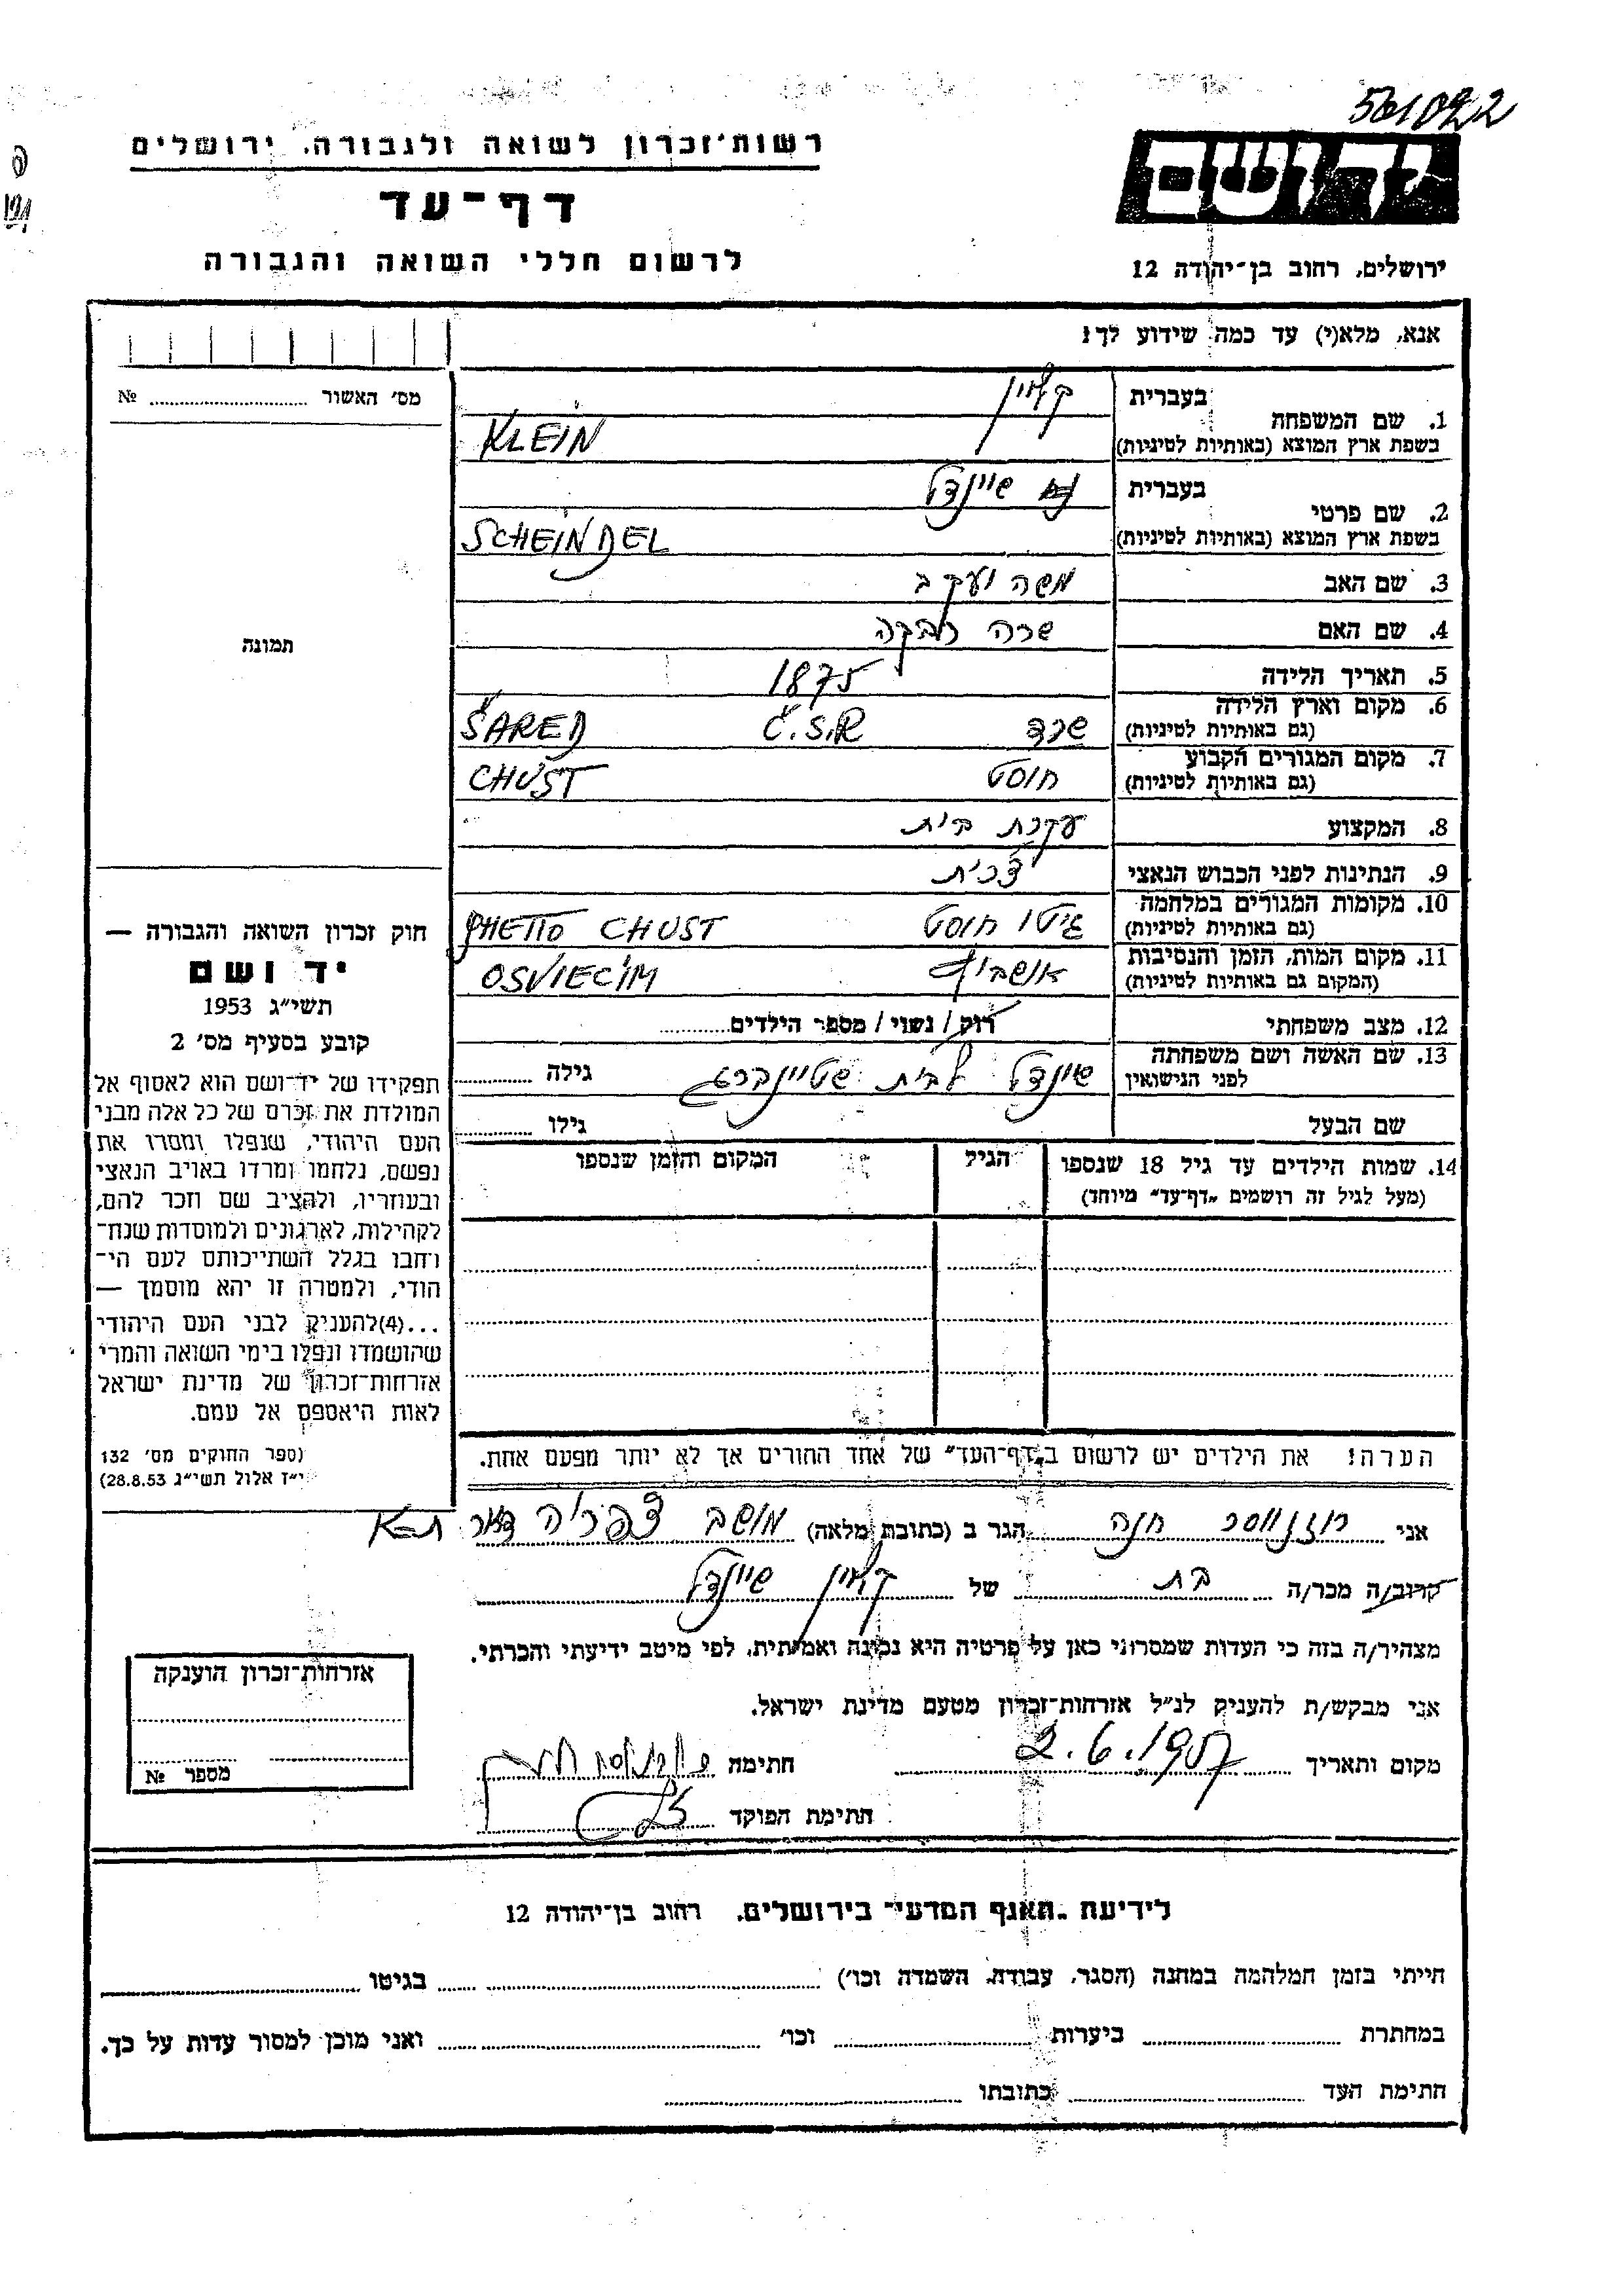 561092
יד ושם
ירושלים, רחוב בן־יהודה 12
רשות־זכרון לשואה ולגבורה, ירושלים
דף־עד
לרשום חללי השואה והגבורה
אנא, מלא(י) עד כמה שידוע לך:
מס׳ האשור № ........
תמונה
1. שם המשפחה בעברית קליין
בשפת ארץ המוצא (באותיות לטיניות) KLEIN
2. שם פרטי בעברית שיינדל
בשפת ארץ המוצא (באותיות לטיניות) SCHEINDEL
3. שם האב משה יעקב
4. שם האם שרה רבקה
5. תאריך הלידה 1875
6. מקום וארץ הלידה (גם באותיות לטיניות) שרד Č.S.R ŠARED
7. מקום המגורים הקבוע (גם באותיות לטיניות) חוסט CHUST
8. המקצוע עקרת בית
9. הנתינות לפני הכבוש הנאצי צ׳כית
10. מקומות המגורים במלחמה (גם באותיות לטיניות) גיטו חוסט GHETTO CHUST
11. מקום המות, הזמן והנסיבות (המקום גם באותיות לטיניות) אושביץ OSVIECIM
12. מצב משפחתי רווק / נשוי / מספר הילדים........
13. שם האשה ושם משפחתה לפני הנישואין שיינדל לבית שטיינברג גילה ........
שם הבעל גילו ........
14. שמות הילדים עד גיל 18 שנספו (מעל לגיל זה רושמים „דף־עד״ מיוחד) הגיל המקום והזמן שנספו
הערה: את הילדים יש לרשום ב„דף־העד״ של אחד ההורים אך לא יותר מפעם אחת.
חוק זכרון השואה והגבורה —
יד ושם
תשי״ג 1953
קובע בסעיף מס׳ 2
תפקידו של יד־ושם הוא לאסוף אל
המולדת את זכרם של כל אלה מבני
העם היהודי, שנפלו ומסרו את
נפשם, נלחמו ומרדו באויב הנאצי
ובעוזריו, ולהציב שם וזכר להם,
לקהילות, לארגונים ולמוסדות שנח־
רבו בגלל השתייכותם לעם הי־
הודי, ולמטרה זו יהא מוסמך —
...(4) להעניק לבני העם היהודי
שהושמדו ונפלו בימי השואה והמרי
אזרחות־זכרון של מדינת ישראל
לאות היאספם אל עמם.
(ספר החוקים מס׳ 132
י״ז אלול תשי״ג 28.8.53)
אני חנה הגר ב (כתובת מלאה) מושב צפריה דאר
קרוב/ה מכר/ה בת של קליין שיינדל
מצהיר/ה בזה כי העדות שמסרתי כאן על פרטיה היא נכונה ואמיתית, לפי מיטב ידיעתי והכרתי.
אני מבקש/ת להעניק לנ״ל אזרחות־זכרון מטעם מדינת ישראל.
מקום ותאריך 2.6.1957 חתימה
חתימת הפוקד
אזרחות־זכרון הוענקה
מספר №
לידיעת „האגף המדעי״ בירושלים, רחוב בן־יהודה 12
הייתי בזמן המלחמה במחנה (הסגר, עבודה, השמדה וכו׳) ........ בגיטו ........
במחתרת ........ ביערות ........ וכו׳ ........ ואני מוכן למסור עדות על כך.
חתימת העד ........ כתובתו ........